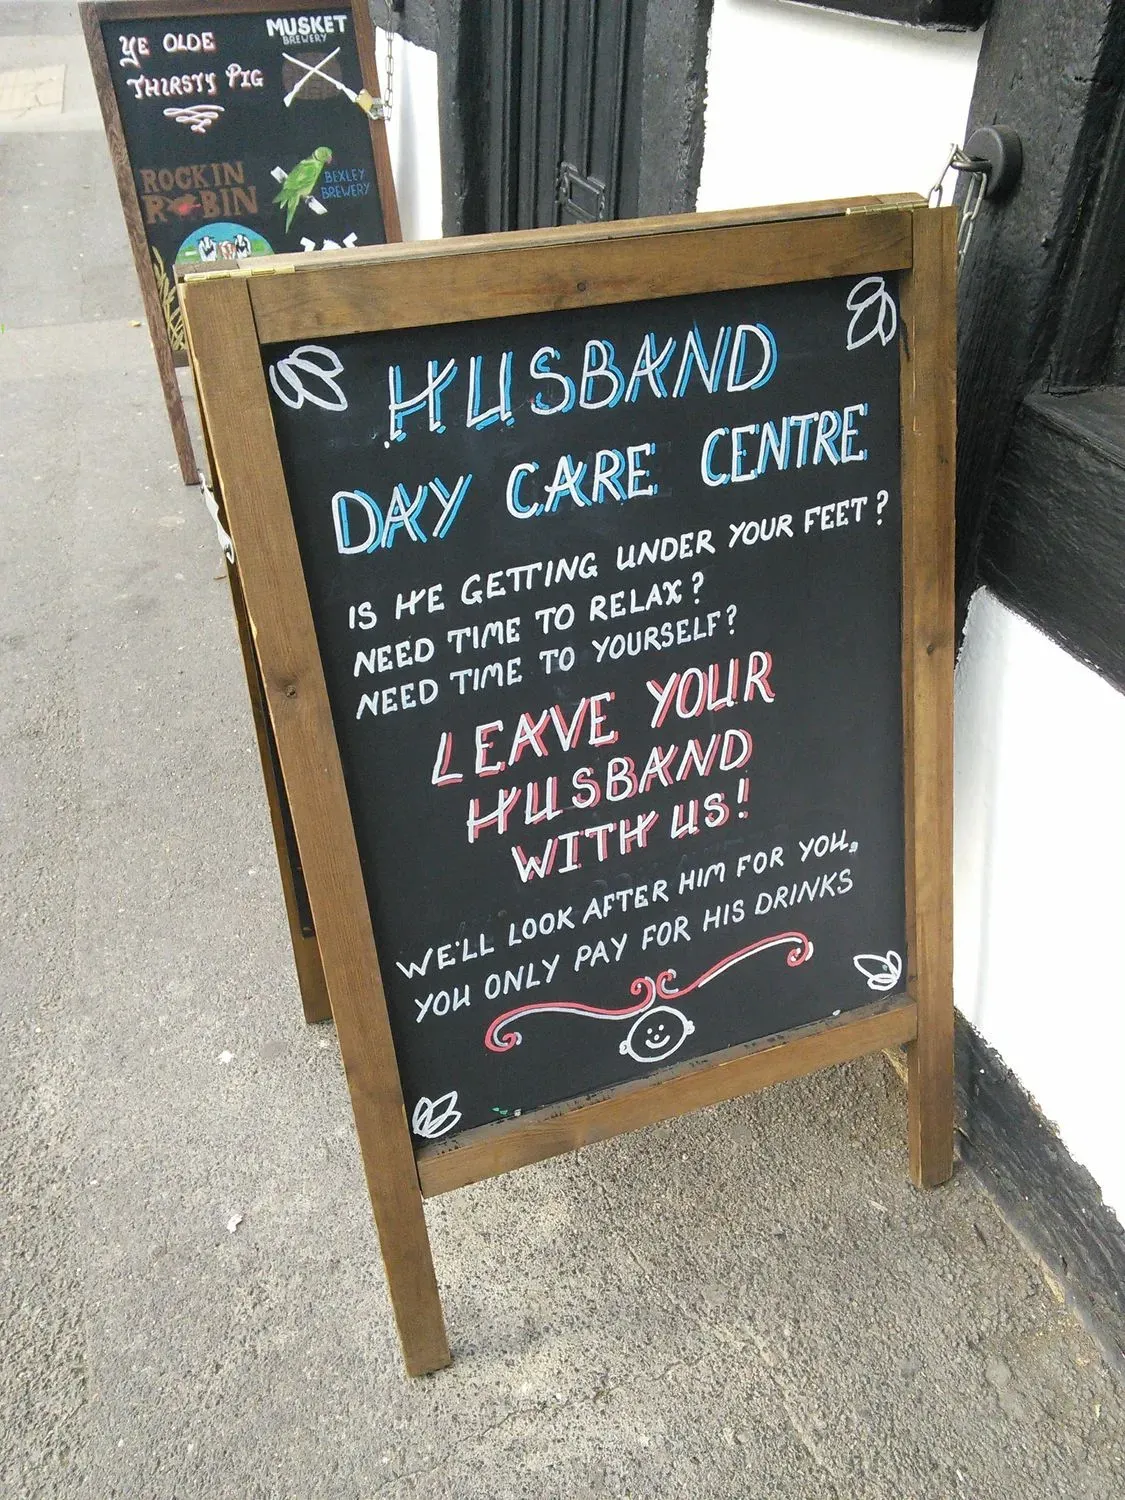 YE OLDE
THIRSTY PIG
MUSKET
BREWERY
ROCKIN
ROBIN
BEXLEY
BREWERY
HUSBAND
DAY CARE CENTRE
IS HE GETTING UNDER YOUR FEET?
NEED TIME TO RELAX?
NEED TIME TO YOURSELF?
LEAVE YOUR
HUSBAND
WITH US!
WE'LL LOOK AFTER HIM FOR YOU,
YOU ONLY PAY FOR HIS DRINKS